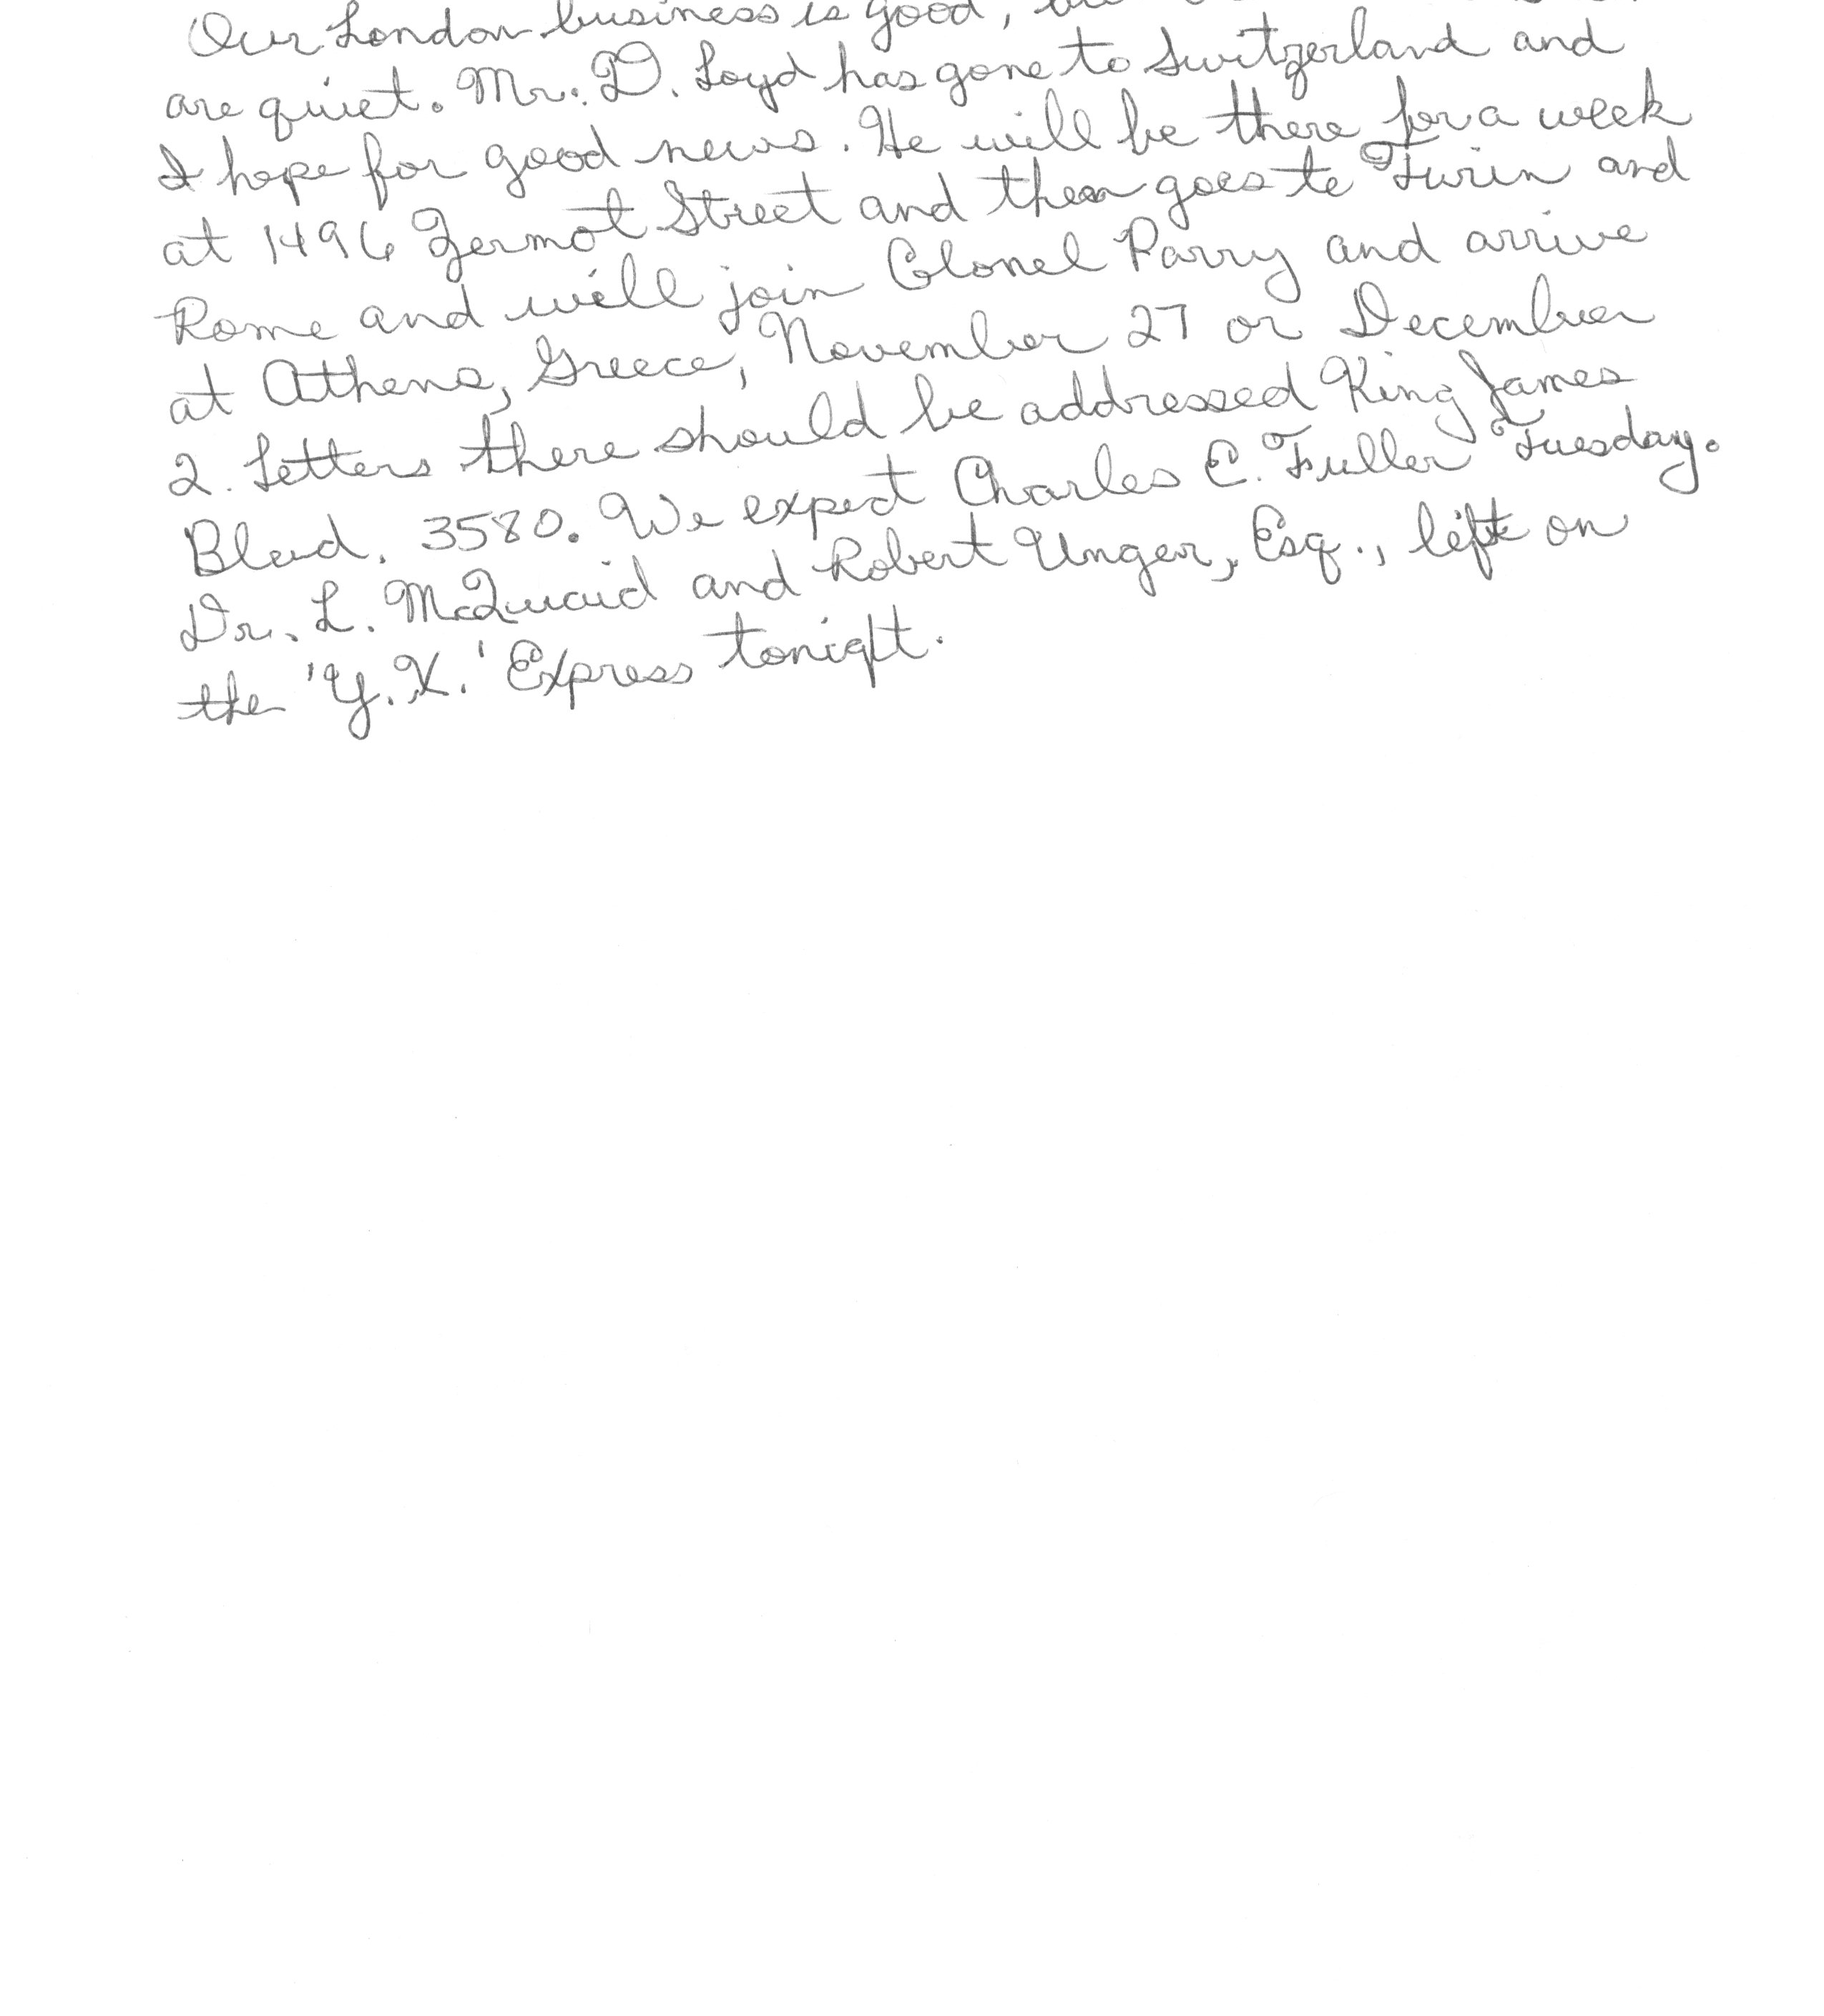 Our London business is good,
are quiet. Mr. D. Loyd has gone to Switzerland and
I hope for good news. He will be there for a week
at 1496 Zermot Street and then goes to Turin and
Rome and will join Colonel Parry and arrive
at Athens, Greece, November 27 or December
2. Letters there should be addressed King James
Blvd. 3580. We expect Charles E. Fuller Tuesday.
Dr. L. McQuaid and Robert Unger, Esq., left on
the 'Y.X.' Express tonight.